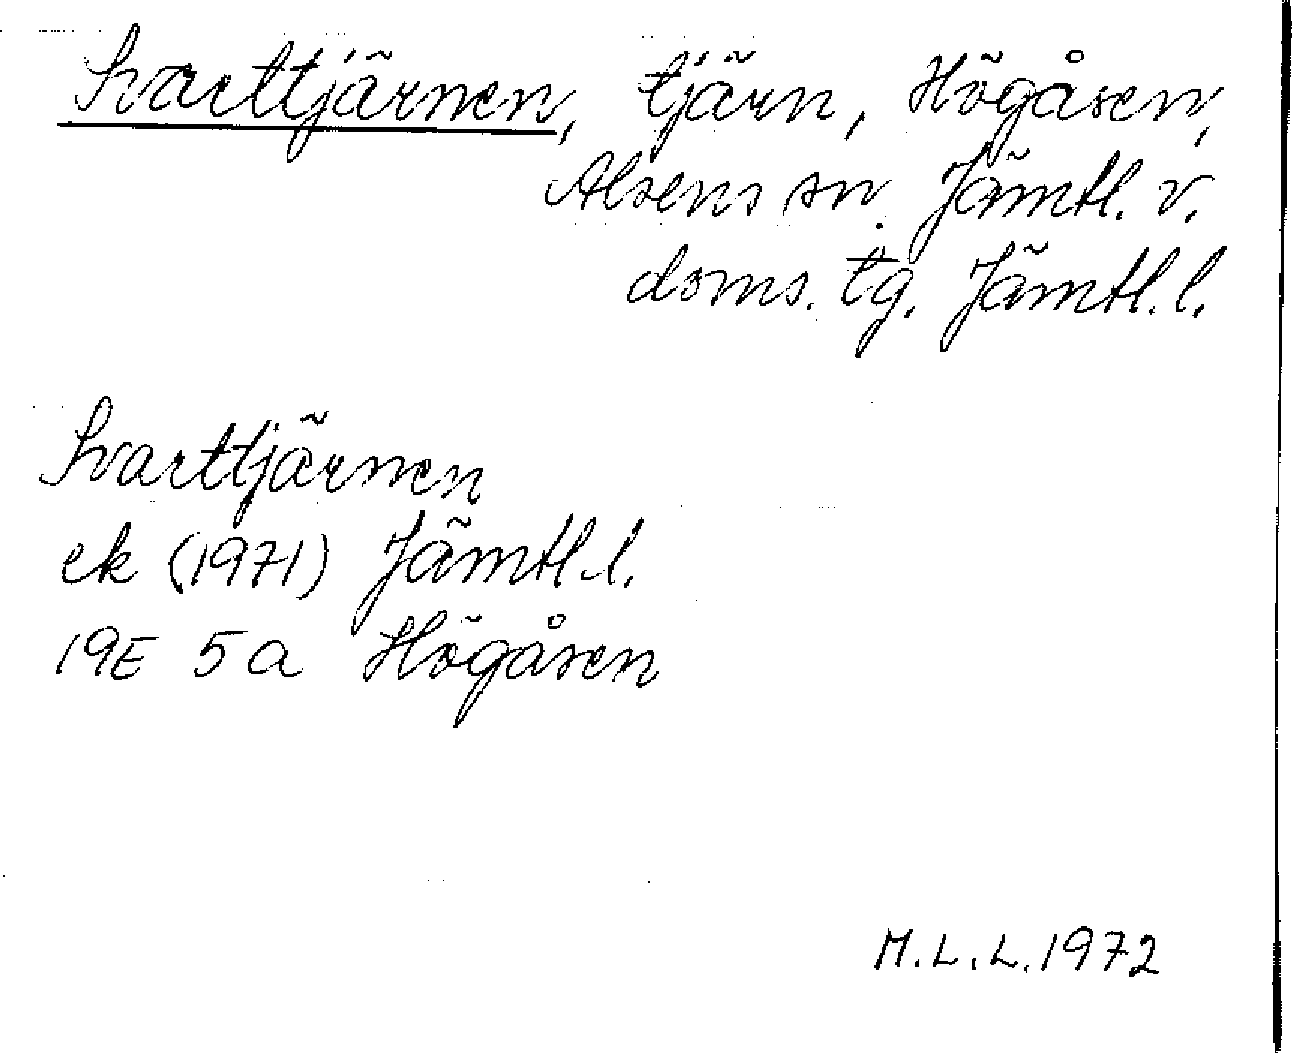 Svarttjärnen, tjärn, Högåsen,
Alsens sn. Jämtl. v.
doms. tg. Jämtl. l.
Svarttjärnen
ek (1971) Jämtl. l.
19E 5a Högåsen
M.L.L. 1972